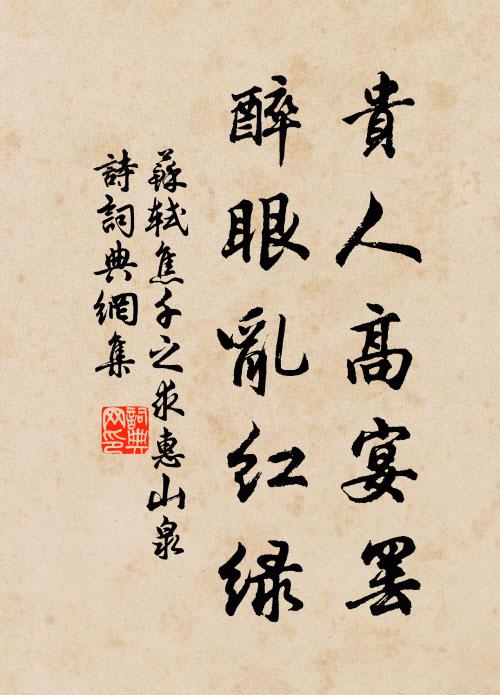 貴人高宴罷
醉眼亂紅緑
蘇軾焦千之求惠山泉
詩詞典網集
詞典网印